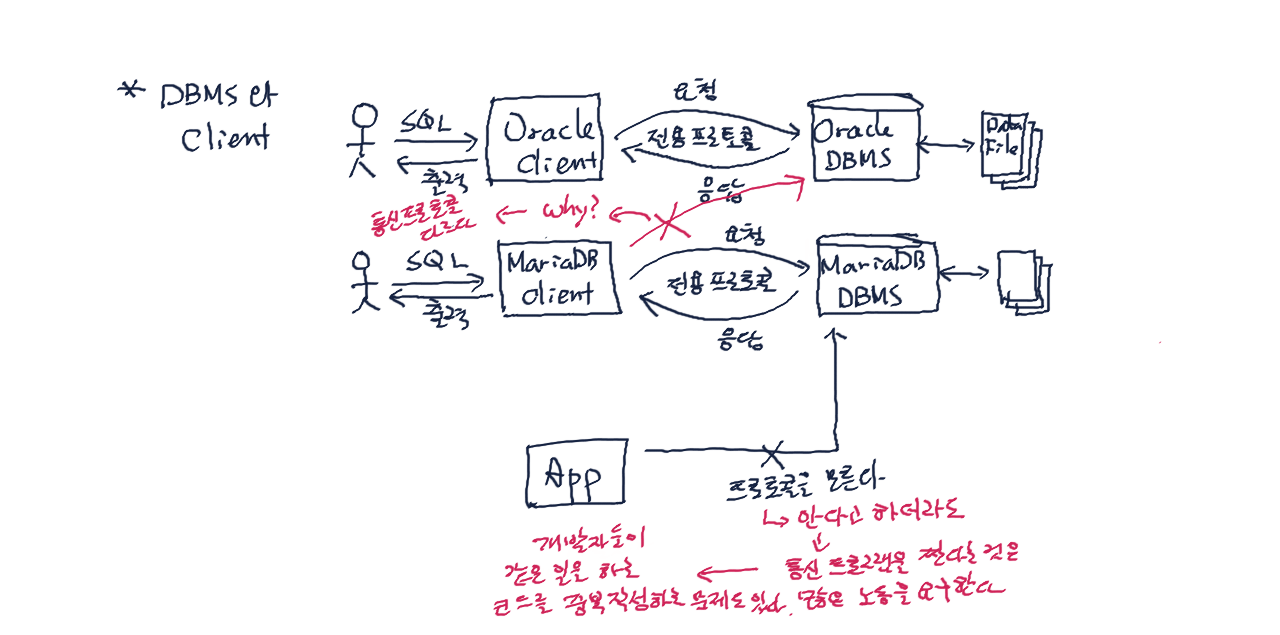 * DBMS 와
Client
SQL
출력
Oracle
Client
요청
전용 프로토콜
응답
Oracle
DBMS
Data
File
통신프로토콜
다르다
← why?
SQL
출력
MariaDB
Client
요청
전용 프로토콜
응답
MariaDB
DBMS
App
프로토콜을 모른다
↳ 안다고 하더라도
통신 프로그램을 짠다는 것은
많은 노동을 요구한다
개발자들이
같은 일을 하는
코드를 중복작성하는 문제도 있다.